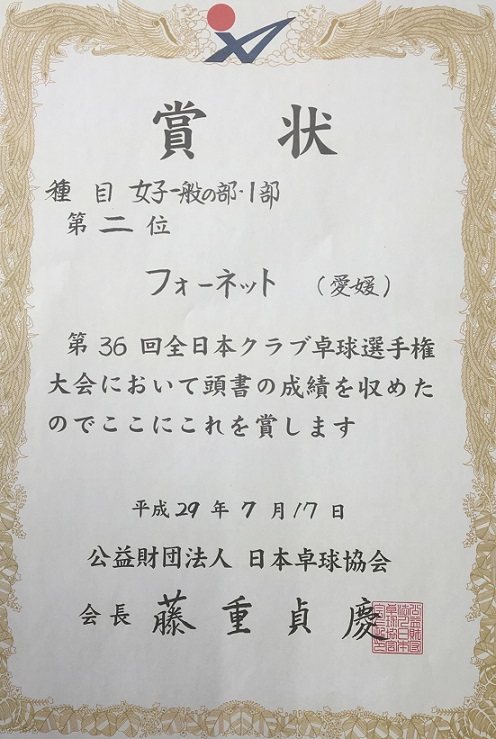 賞状
種目 女子一般の部・1部
第二位
フォーネット (愛媛)
第36回全日本クラブ卓球選手権
大会において頭書の成績を収めた
のでここにこれを賞します
平成29年7月17日
公益財団法人 日本卓球協会
会長 藤重貞慶